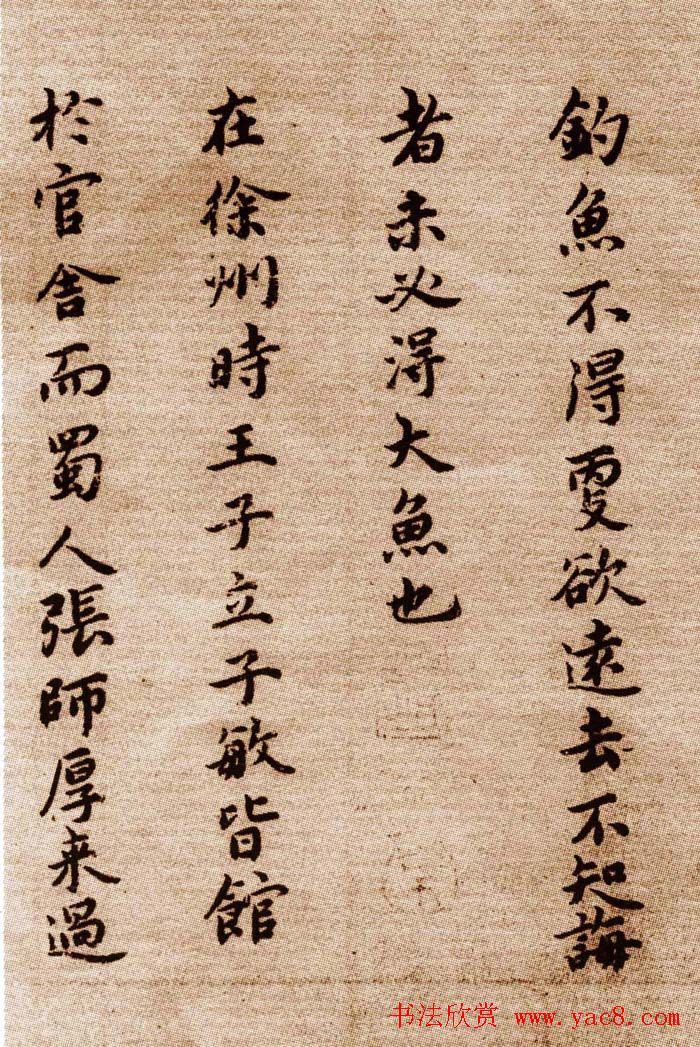 釣魚不得更欲遠去不知誨
者未必得大魚也
在徐州時王子立子敏皆館
於官舍而蜀人張師厚来過
书法欣赏 www.yac8.com